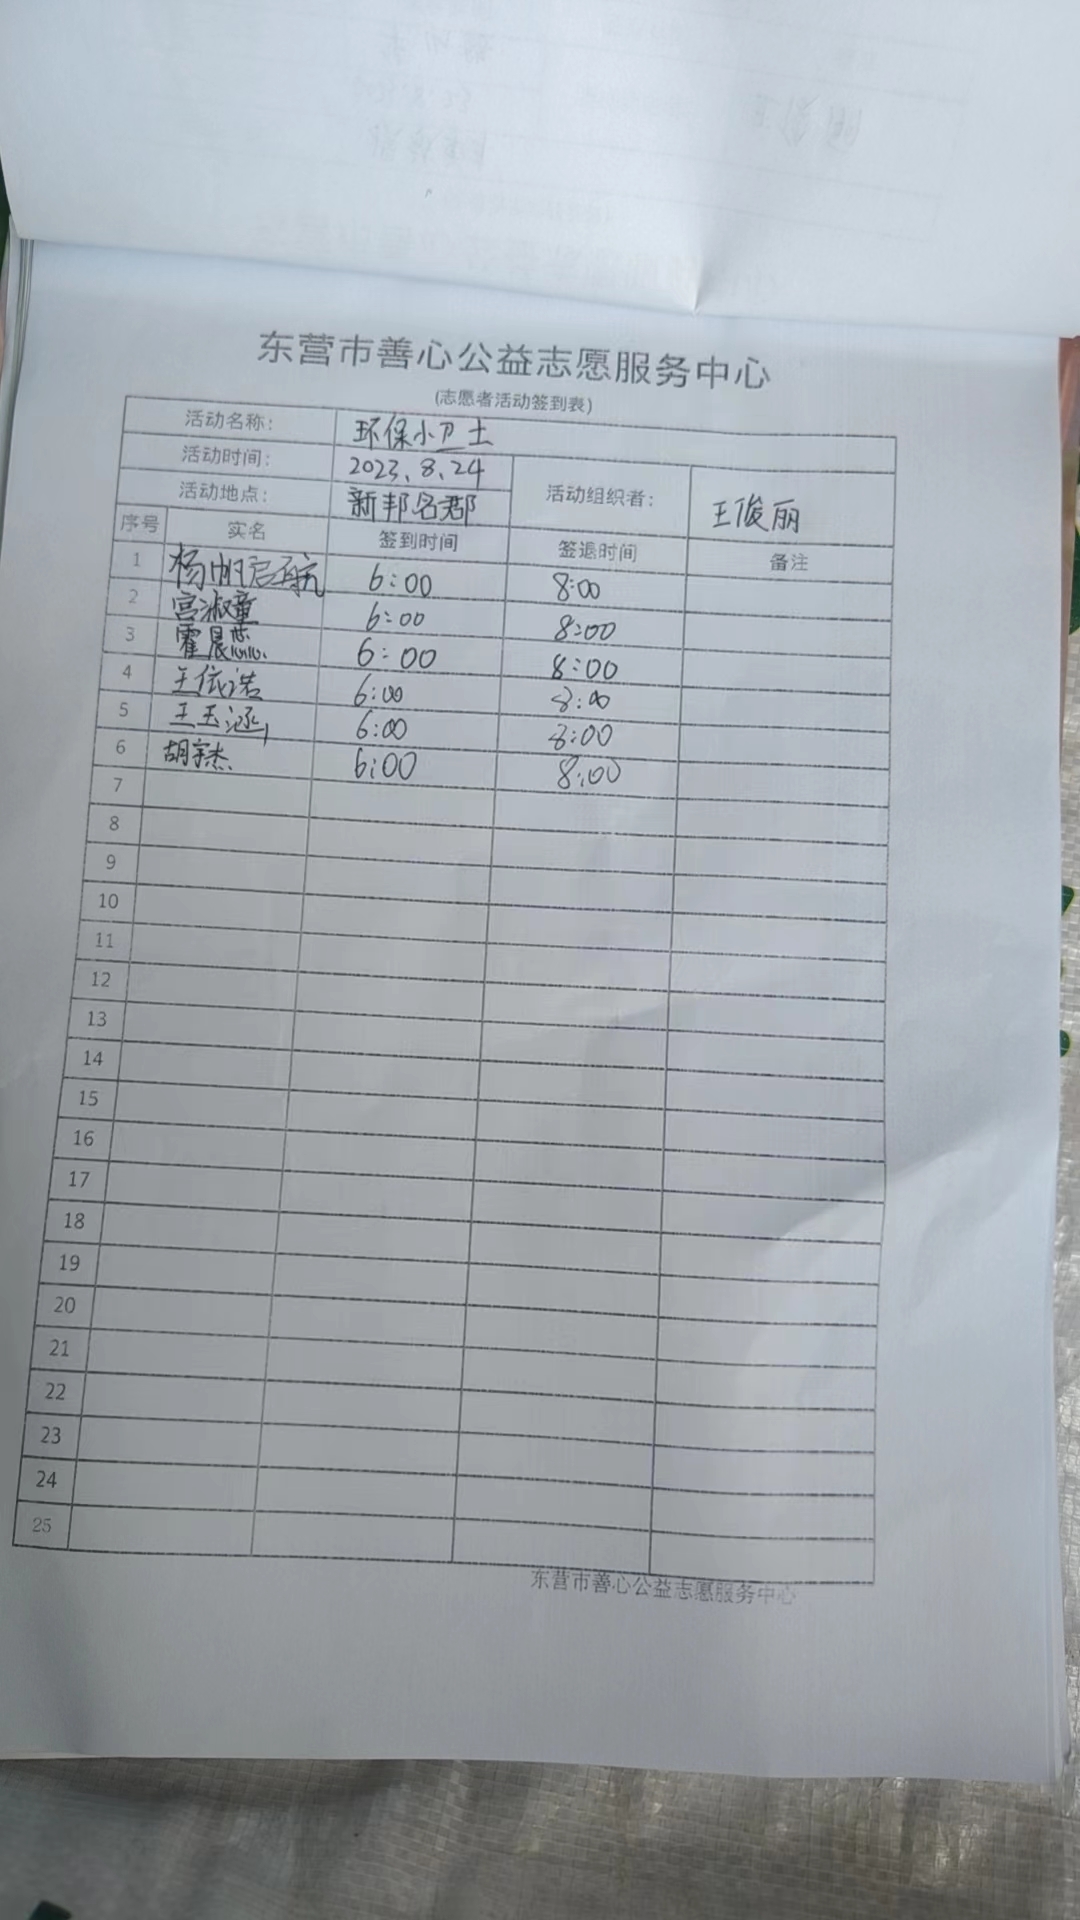 东营市善心公益志愿服务中心
(志愿者活动签到表)
活动名称: 环保小卫士
活动时间: 2023.8.24 活动组织者: 王俊丽
活动地点: 新邦名郡
序号 实名 签到时间 签退时间 备注
1 杨帆启航 6:00 8:00
2 宫淑童 6:00 8:00
3 霍晨 6:00 8:00
4 王依诺 6:00 8:00
5 王玉涵 6:00 8:00
6 胡宇杰 6:00 8:00
7
8
9
10
11
12
13
14
15
16
17
18
19
20
21
22
23
24
25
东营市善心公益志愿服务中心